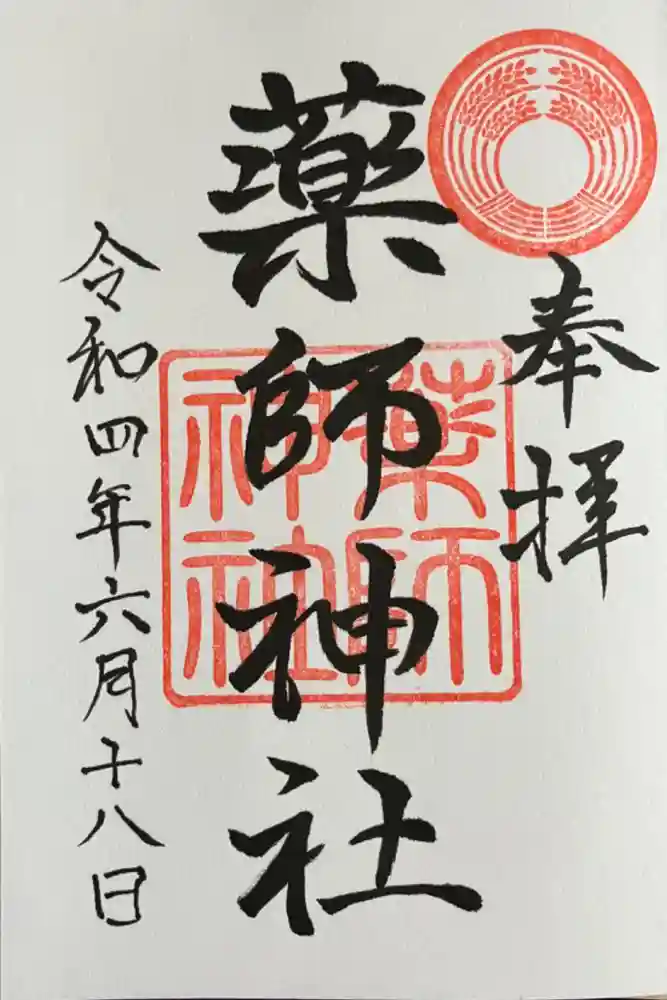 奉拝
薬師神社
薬師
神社
令和四年六月十八日